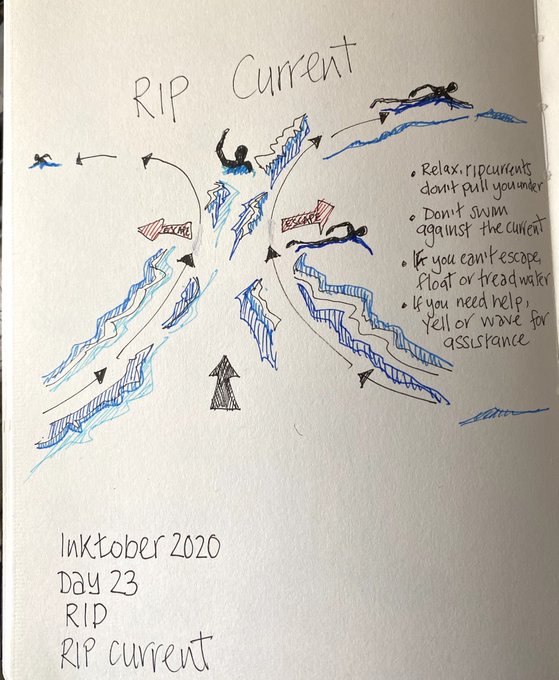 RIP Current
ESCAPE
ESCAPE
• Relax, rip currents
don't pull you under
• Don't swim
against the current
• If you can't escape,
float or tread water
• If you need help,
Yell or wave for
assistance
Inktober 2020
Day 23
RIP
RIP current